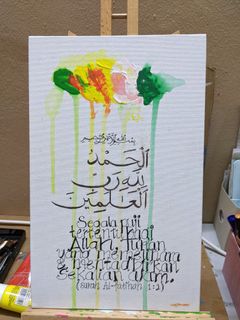 بسم الله الرحمن الرحيم
الْحَمْدُ
لِلَّهِ رَبِّ
الْعَالَمِينَ
Segala puji
tertentu bagi
Allah, Tuhan
yang memelihara
& mentadbirkan
Sekalian alam.
(Surah Al-fatihah 1:2)